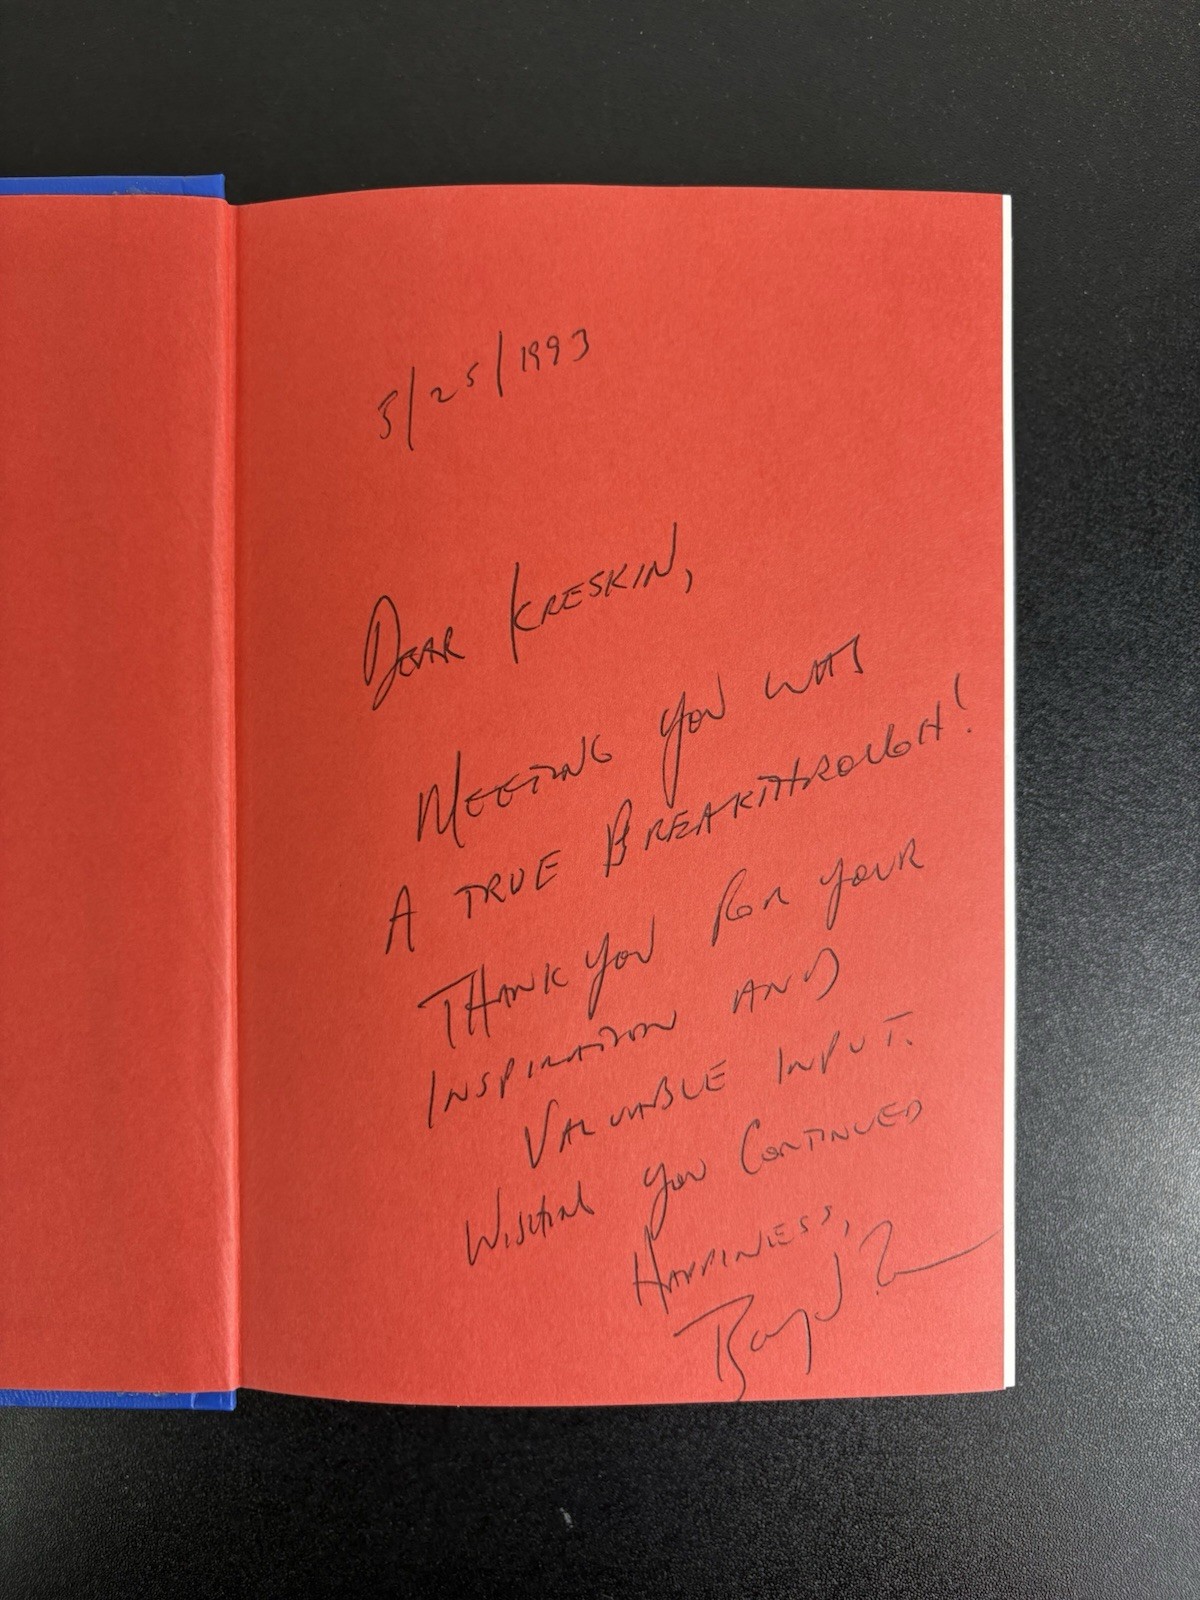 5/25/1993
DEAR KRESKIN,
MEETING YOU WAS
A TRUE BREAKTHROUGH!
THANK YOU FOR YOUR
INSPIRATION AND
VALUABLE INPUT.
WISHING YOU CONTINUED
HAPPINESS,